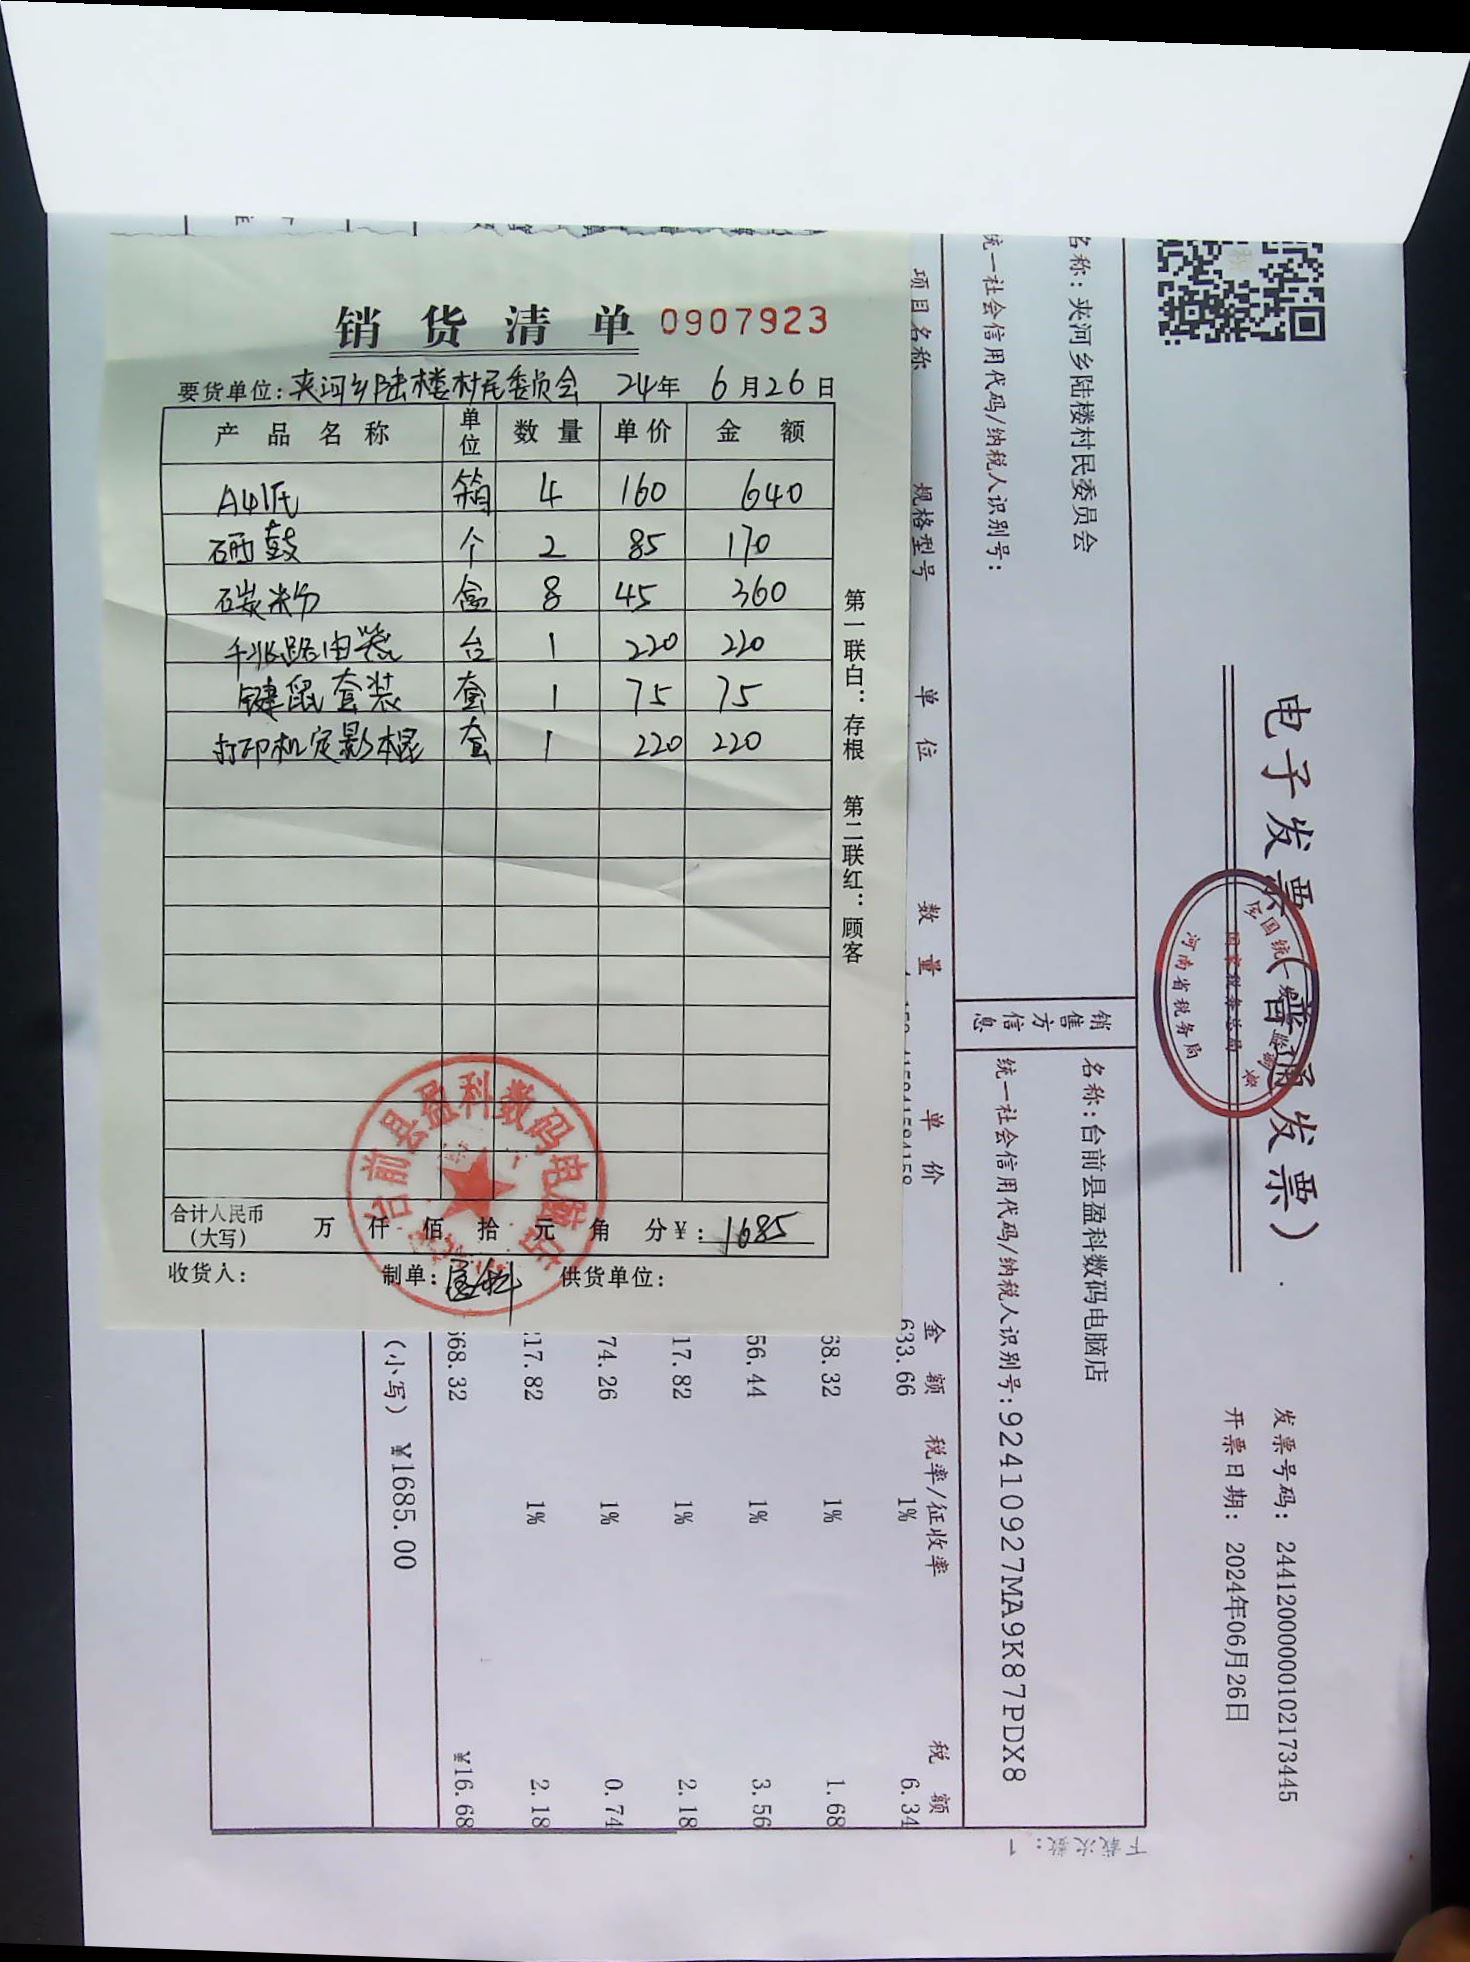 销货清单 0907923
要货单位:夹河乡陆楼村民委员会 24年 6月26日
产品名称 单位 数量 单价 金额
A4纸 箱 4 160 640
硒鼓 个 2 85 170
碳粉 盒 8 45 360
千兆路由器 台 1 220 220
键鼠套装 套 1 75 75
打印机定影棍 套 1 220 220
合计人民币(大写) 万 仟 佰 拾 元 角 分¥: 1685
收货人: 制单: 供货单位:
第一联白:存根 第二联红:顾客
台前县盈科数码电脑店
电子发票(普通发票)
全国统一发票监制章
国家税务总局
河南省税务局
发票号码: 24412000000102173445
开票日期: 2024年06月26日
名称: 夹河乡陆楼村民委员会
统一社会信用代码/纳税人识别号:
销售方信息
名称:台前县盈科数码电脑店
统一社会信用代码/纳税人识别号:92410927MA9K87PDX8
项目名称 规格型号 单位 数量 单价 金额 税率/征收率 税额
633.66 1% 6.34
68.32 1% 1.68
56.44 1% 3.56
17.82 1% 2.18
74.26 1% 0.74
17.82 1% 2.18
668.32 ¥16.68
(小写) ¥1685.00
下载次数: 1